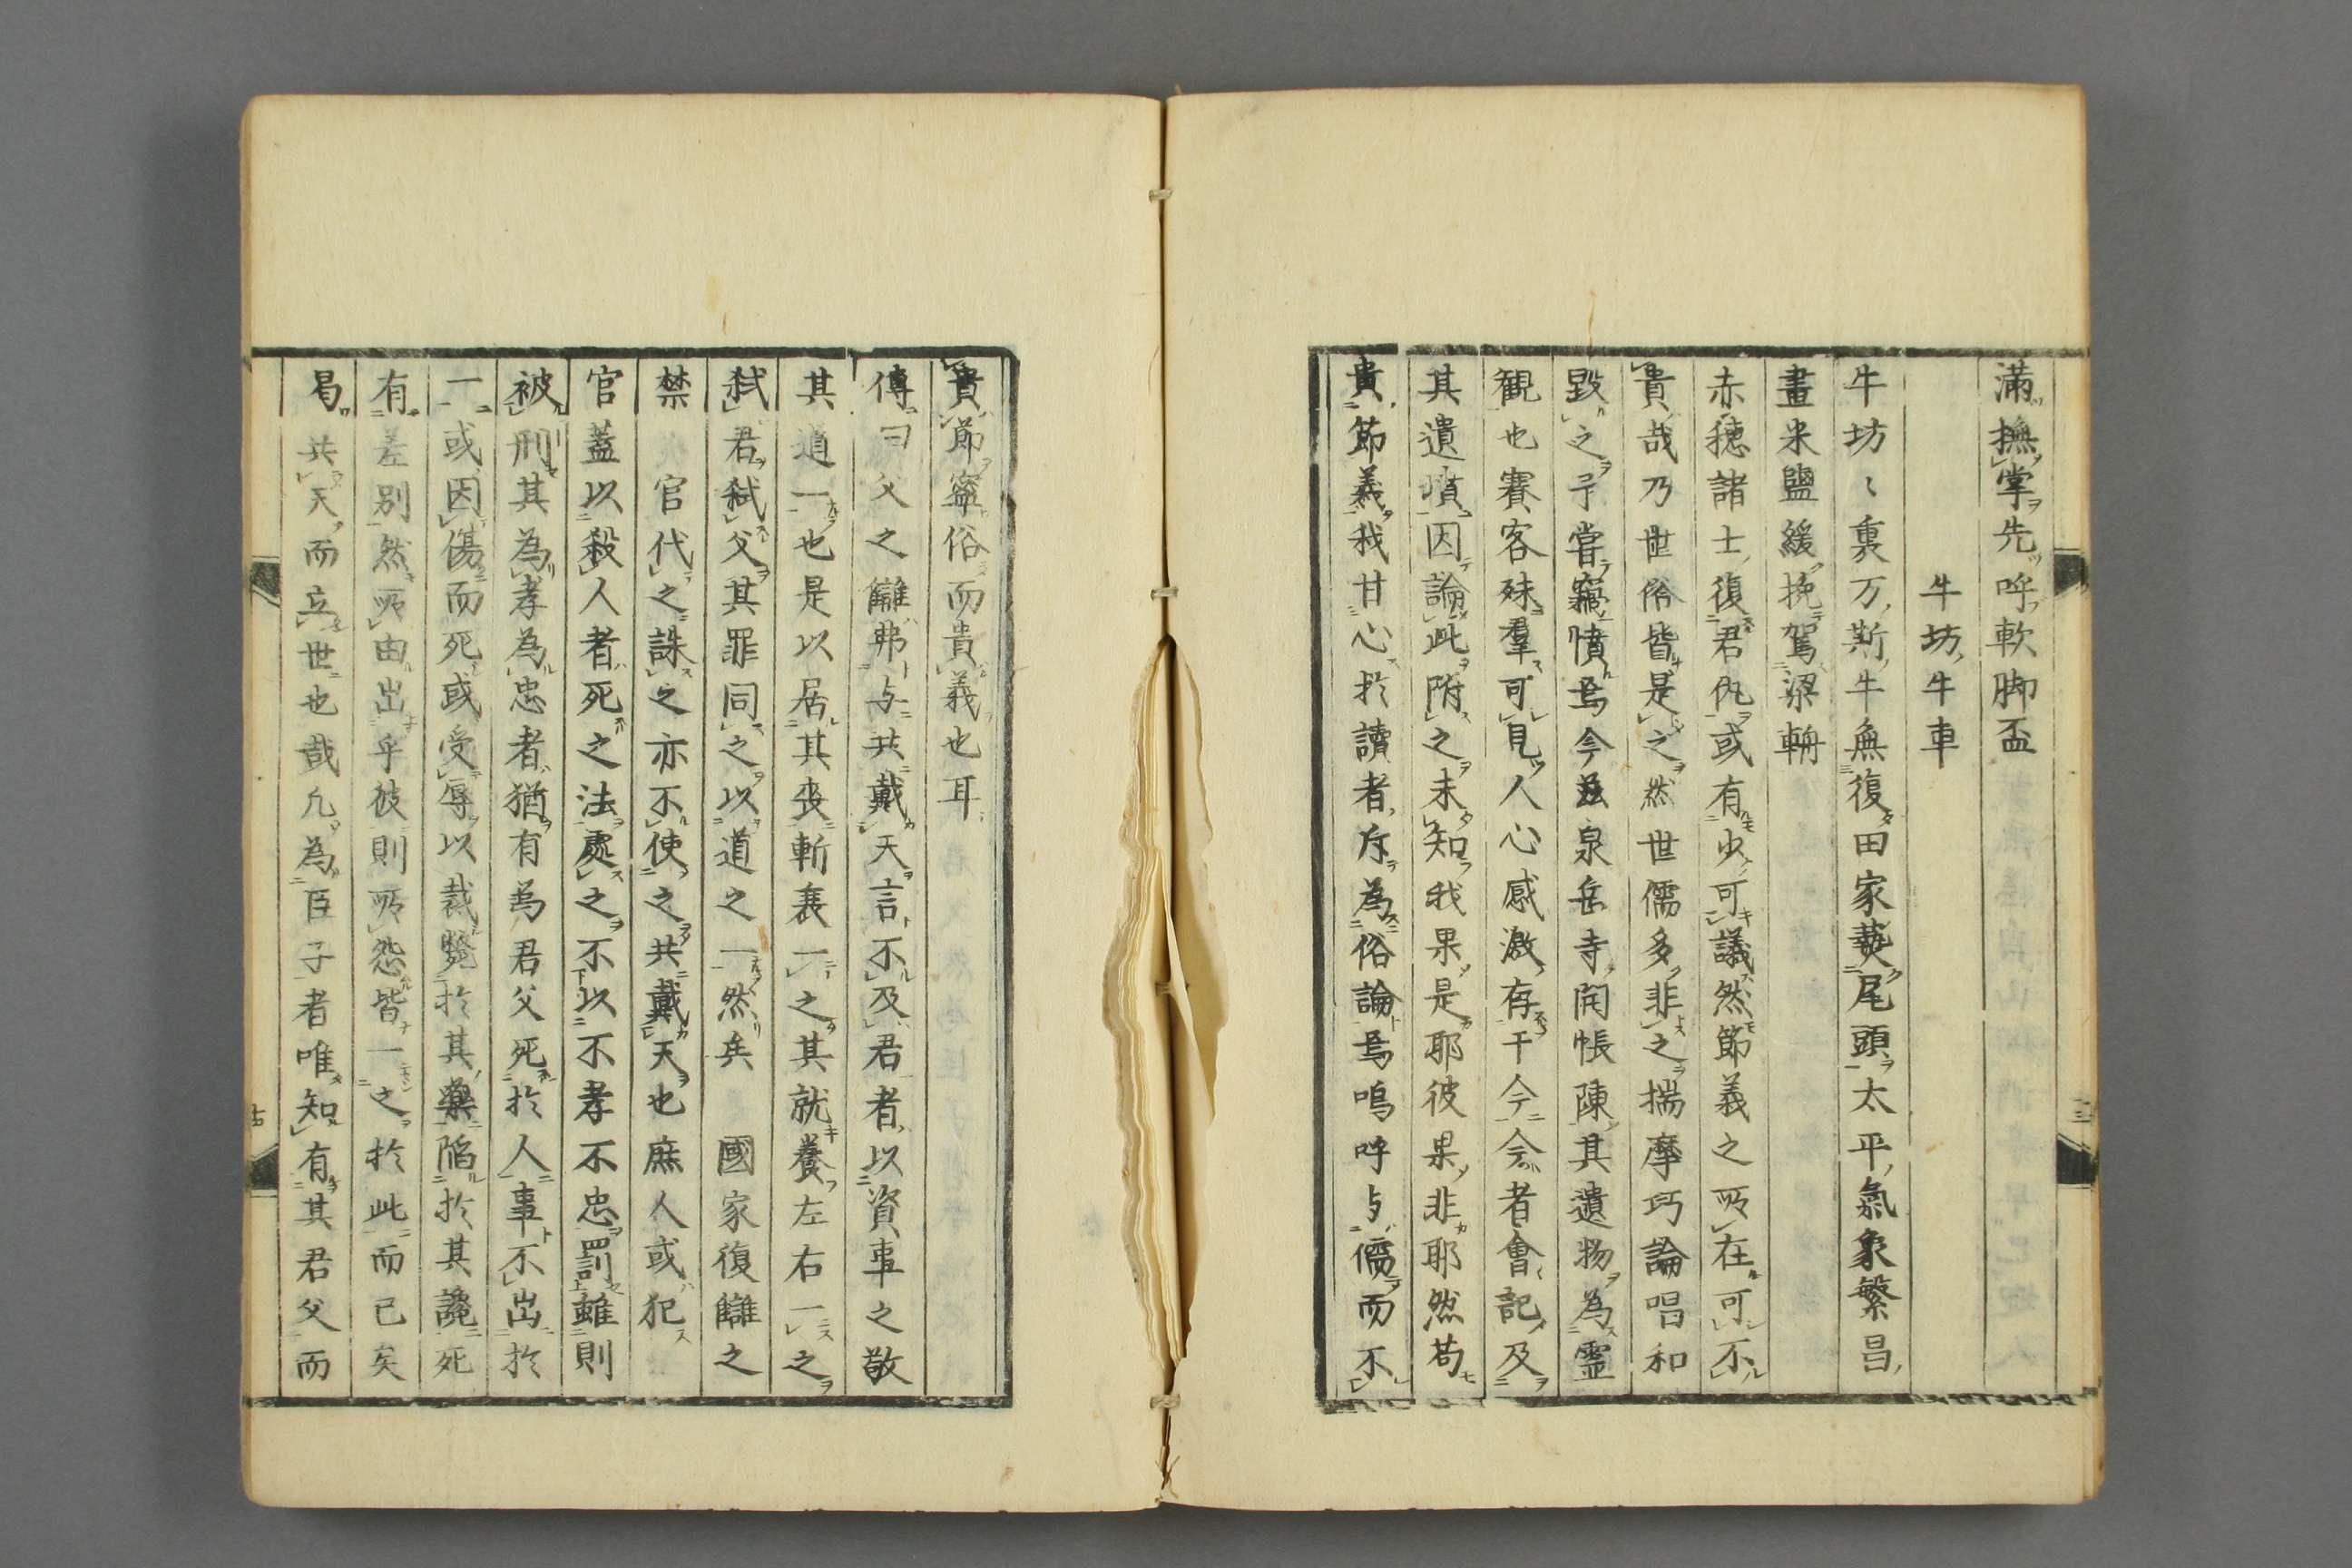 滿撫掌先呼軟脚盃
牛坊牛車
牛坊〻裏万斯牛無復田家爇尾頭太平氣象繁昌
畫米鹽緩挽駕梁輈
赤穂諸士復君仇或有少可議然節義之所在可不
貴哉乃世俗皆是之然世儒多非之揣摩巧論唱和
毀之予嘗竊憤焉今茲泉岳寺開帳陳其遺物為霊
観也賽客殊羣可見人心感激存干今今者會記及
其遺墳因論此附之未知我果是耶彼果非耶然苟
貴節義我甘心於讀者斥為俗論焉嗚呼与儒而不
貴節寧俗而貴義也耳
傳曰父之讎弗与共戴天言不及君者以資事之敬
其道一也是以居其喪斬衰一之其就養左右一之
弑君弑父其罪同之以道之一然矣　國家復讎之
禁　官代之誅之亦不使之共戴天也庶人或犯
官蓋以殺人者死之法處之不以不孝不忠罰雖則
被刑其為孝為忠者猶有為君父死於人事不出於
一或因傷而死或受辱以裁斃於其藥陥於其讒死
有差別然所由出乎彼則所怨皆一之於此而已矣
曷共天而立世也哉凡為臣子者唯知有其君父而